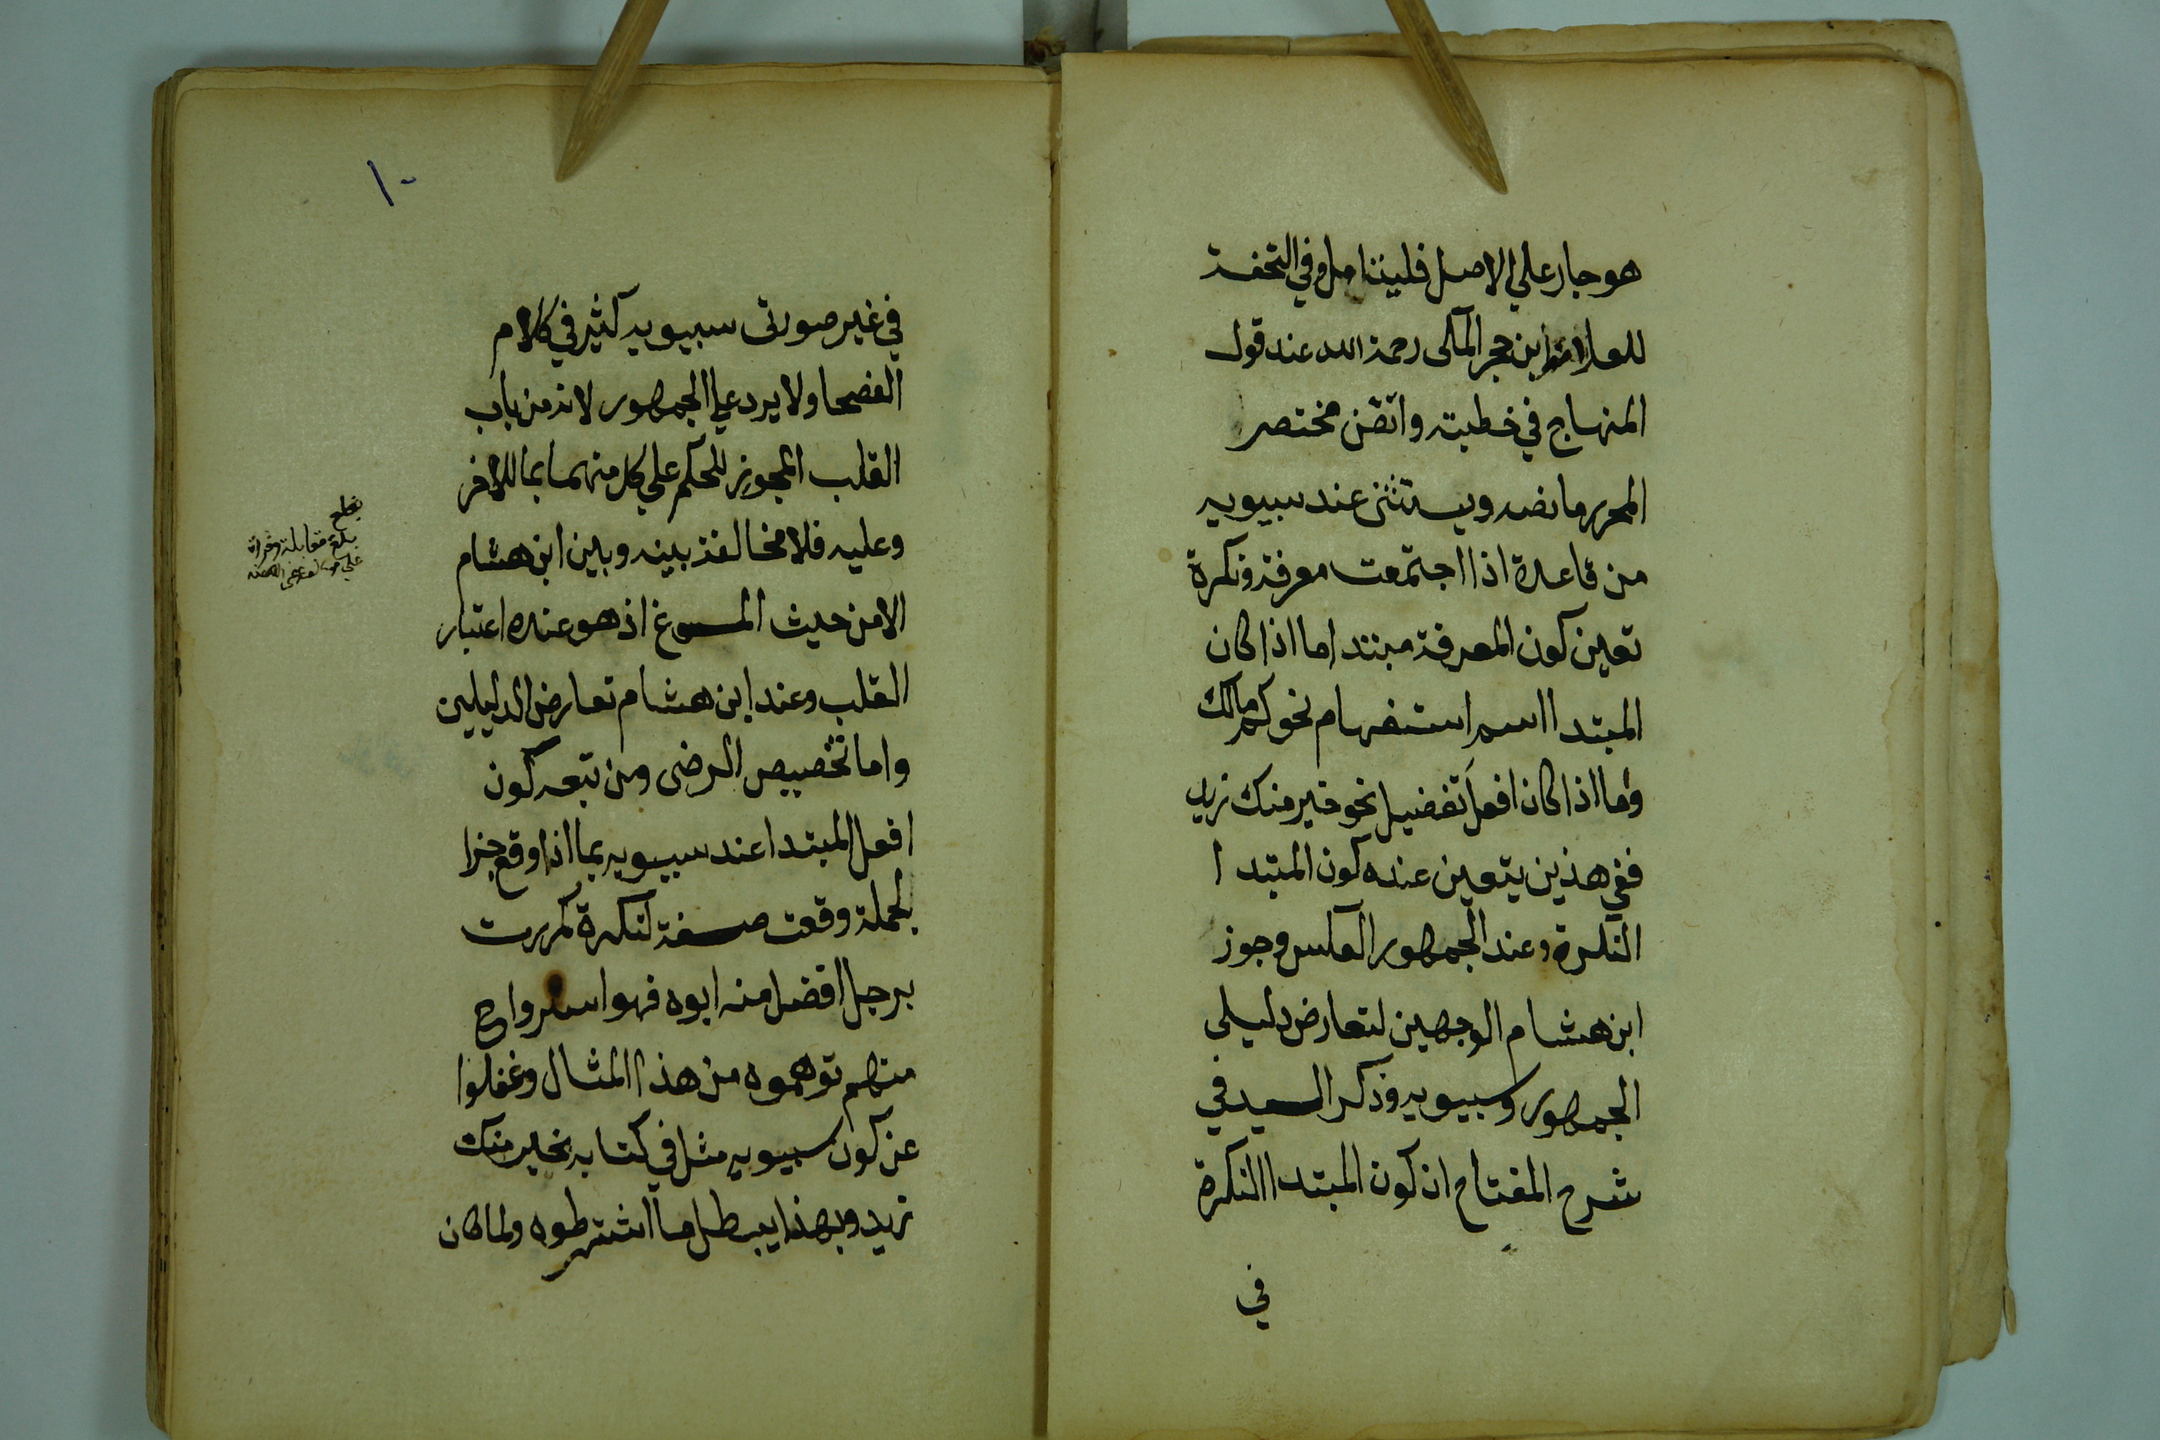 هو جار علي الاصل فليتنامل وفي التحفة
للعلامة ابن حجر المكى رحمة الله عند قول
المنهاج في خطبته واتقن مختصر
المحرر ما نصه ويستثنى عند سيبويه
من قاعدة اذا اجتمعت معرفة ونكرة
تعين كون المعرفة مبتدا ما اذا كان
المبتدا اسم استفهام نحو كم مالك
وما اذا كان افعل تفضيل نحو خير منك زيد
ففي هذين يتعين عنده كون المبتدا
النكرة وعند الجمهور العكس وجوز
ابن هشام الوجهين لتعارض دليلى
الجمهور وسيبويه وذكر السيد في
شرح المفتاح ان كون المبتدا النكرة
في
١٠
في غير صورتى سيبويه كثير في كلام
الفصحا ولا يرد علي الجمهور لانه من باب
القلب المجوز للحكم علي كل منهما بما للاخر
وعليه فلا مخالفة بينه وبين ابن هشام
الا من حيث المسوغ اذ هو عنده اعتبار
القلب وعند ابن هشام تعارض الدليلين
واما تخصيص الرضى ومن تبعه كون
افعل المبتدا عند سيبويه بما اذا وقع جزا
لجملة وقعت صفة لنكرة كمررت
برجل افضل منه ابوه فهو
منهم توهموه من هذا المثال وغفلوا
عن كون سيبويه مثل في كتابه بخير منك
زيد وبهذا يبطل ما اشترطوه ولما كان
بلغ مقابلة وقراة